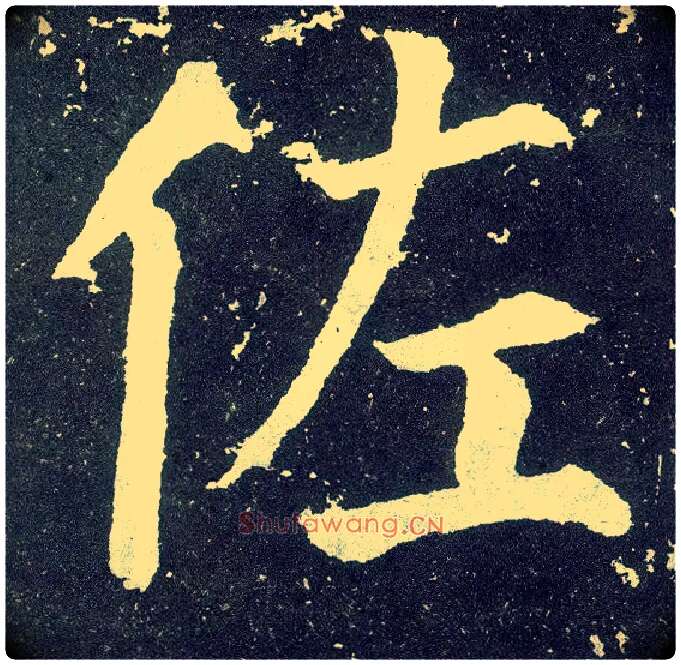 佐
Shufawang.CN